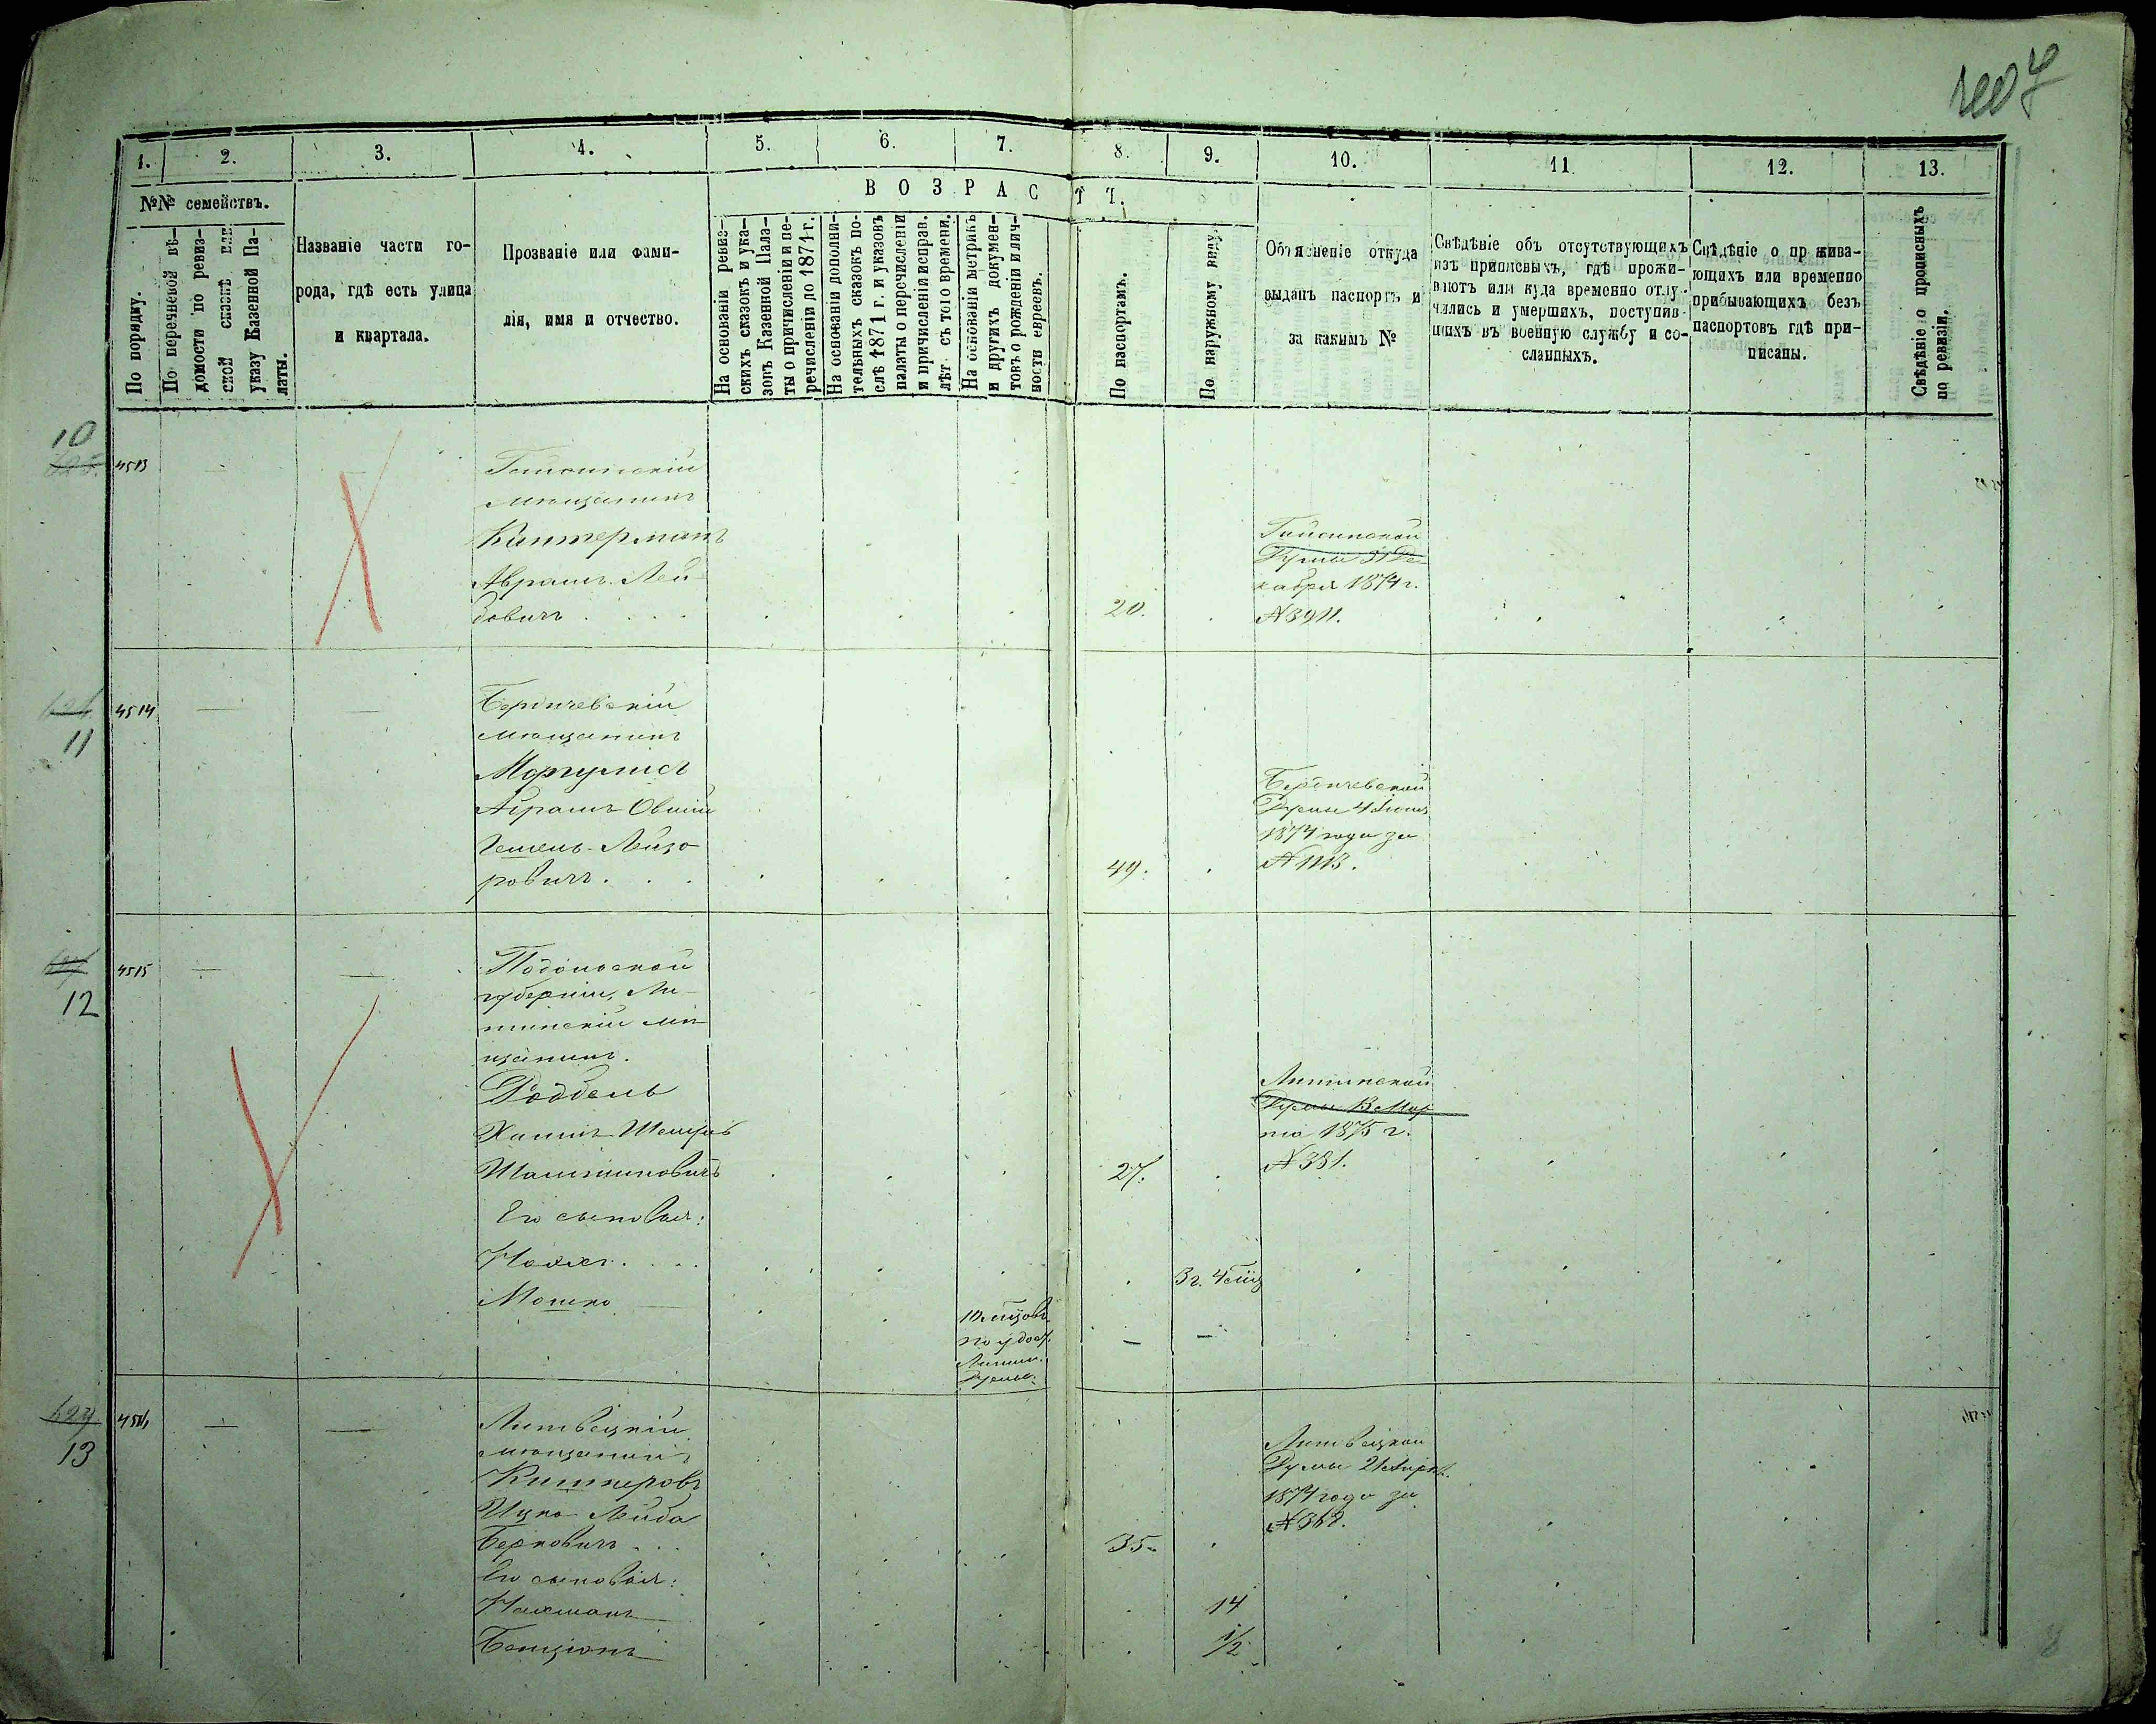 1. 2. 3. 4. 5. 6. 7. 8. 9. 10. 11 12. 13.
№№ семействъ.
По порядку.
По перечневой вѣ-
домости по ревиз-
ской сказкѣ или
указу Казенной Па-
латы.
Названіе части го-
рода, гдѣ есть улица
и квартала.
Прозваніе или фами-
лія, имя и отчество.
ВОЗРАСТЪ.
На основаніи ревиз-
скихъ сказокъ и ука-
зовъ Казенной Пала-
ты о причисленіи и пе-
речисленіи до 1871 г.
На основаніи дополни-
тельныхъ сказокъ по-
слѣ 1871 г. и указовъ
палаты о перечисленіи
и причисленіи исправ.
лѣт съ того времени.
На основаніи метрикъ
и другихъ докумен-
товъ о рожденіи и лич-
ности евреевъ.
По паспортамъ.
По наружному виду.
Объясненіе откуда
выданъ паспортъ и
за какимъ №
Свѣдѣніе объ отсутствующихъ
изъ приписныхъ, гдѣ прожи-
ваютъ или куда временно отлу-
чились и умершихъ, поступив-
шихъ въ военную службу и со-
сланныхъ.
Свѣдѣніе о пр жива-
ющихъ или временно
прибывающихъ безъ
паспортовъ гдѣ при-
писаны.
Свѣдѣніе о прописныхъ
по ревизіи.
10
4513
мѣщанинъ
Киттерманъ
Аврамъ Лей-
бовичъ
20.
Гайсинской
Думы 31 Де-
кабря 1874 г.
№ 3911.
11
4514
Бердичевскій
мѣщанинъ
Моргулисъ
Абрамъ Овшій
Гешель Лейзо-
ровичъ
49.
Бердичевской
1874 года за
№ 1113.
12
4515
Подольской
губерніи, Ли-
тинскій мѣ-
щанинъ.
Хаимъ
Его сыновья:
Мошко
27.
Литинской
Думы 13 Мар-
та 1875 г.
№ 381.
3 г. 4 мѣс
Литин.
Думы.
13
мѣщанинъ
Кишнеровъ
Ицко Лейба
Берковичъ
Его сыновья:
Нахманъ
Бенціонъ
35.
14
1/2
Думы 21 Апрѣл.
1874 года за